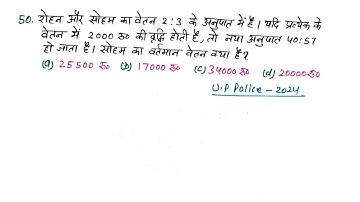 50. रोहन और सोहम का वेतन 2:3 के अनुपात में है। यदि प्रत्येक के
वेतन में 2000 रु० की वृद्धि होती है, तो नया अनुपात 40:57
हो जाता है। सोहम का वर्तमान वेतन क्या है?
(a) 25500 रु० (b) 17000 रु० (c) 34000 रु० (d) 20000 रु०
U.P Police - 2024